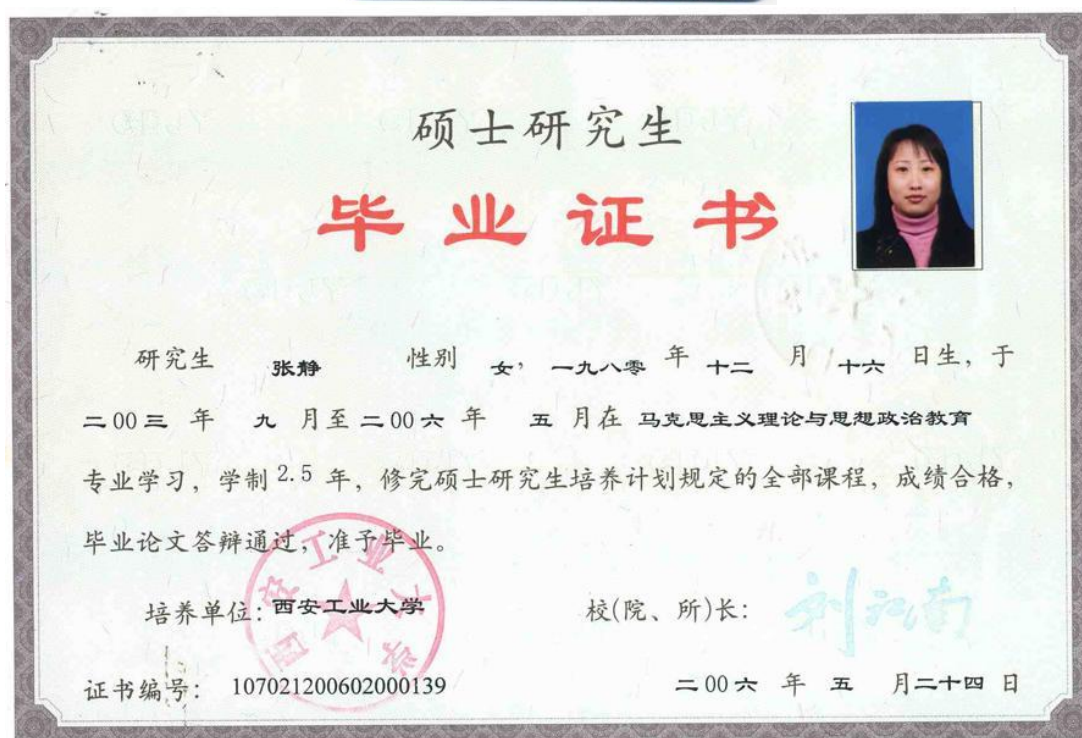 硕士研究生
毕业证书
研究生 张静 性别 女，一九八零 年 十二 月 十六 日生，于
二00三 年 九 月至二00六 年 五 月在 马克思主义理论与思想政治教育
专业学习，学制 2.5 年，修完硕士研究生培养计划规定的全部课程，成绩合格，
毕业论文答辩通过，准予毕业。
西安工业大学
培养单位：西安工业大学 校(院、所)长：刘江南
证书编号： 107021200602000139 二00六 年 五 月二十四 日